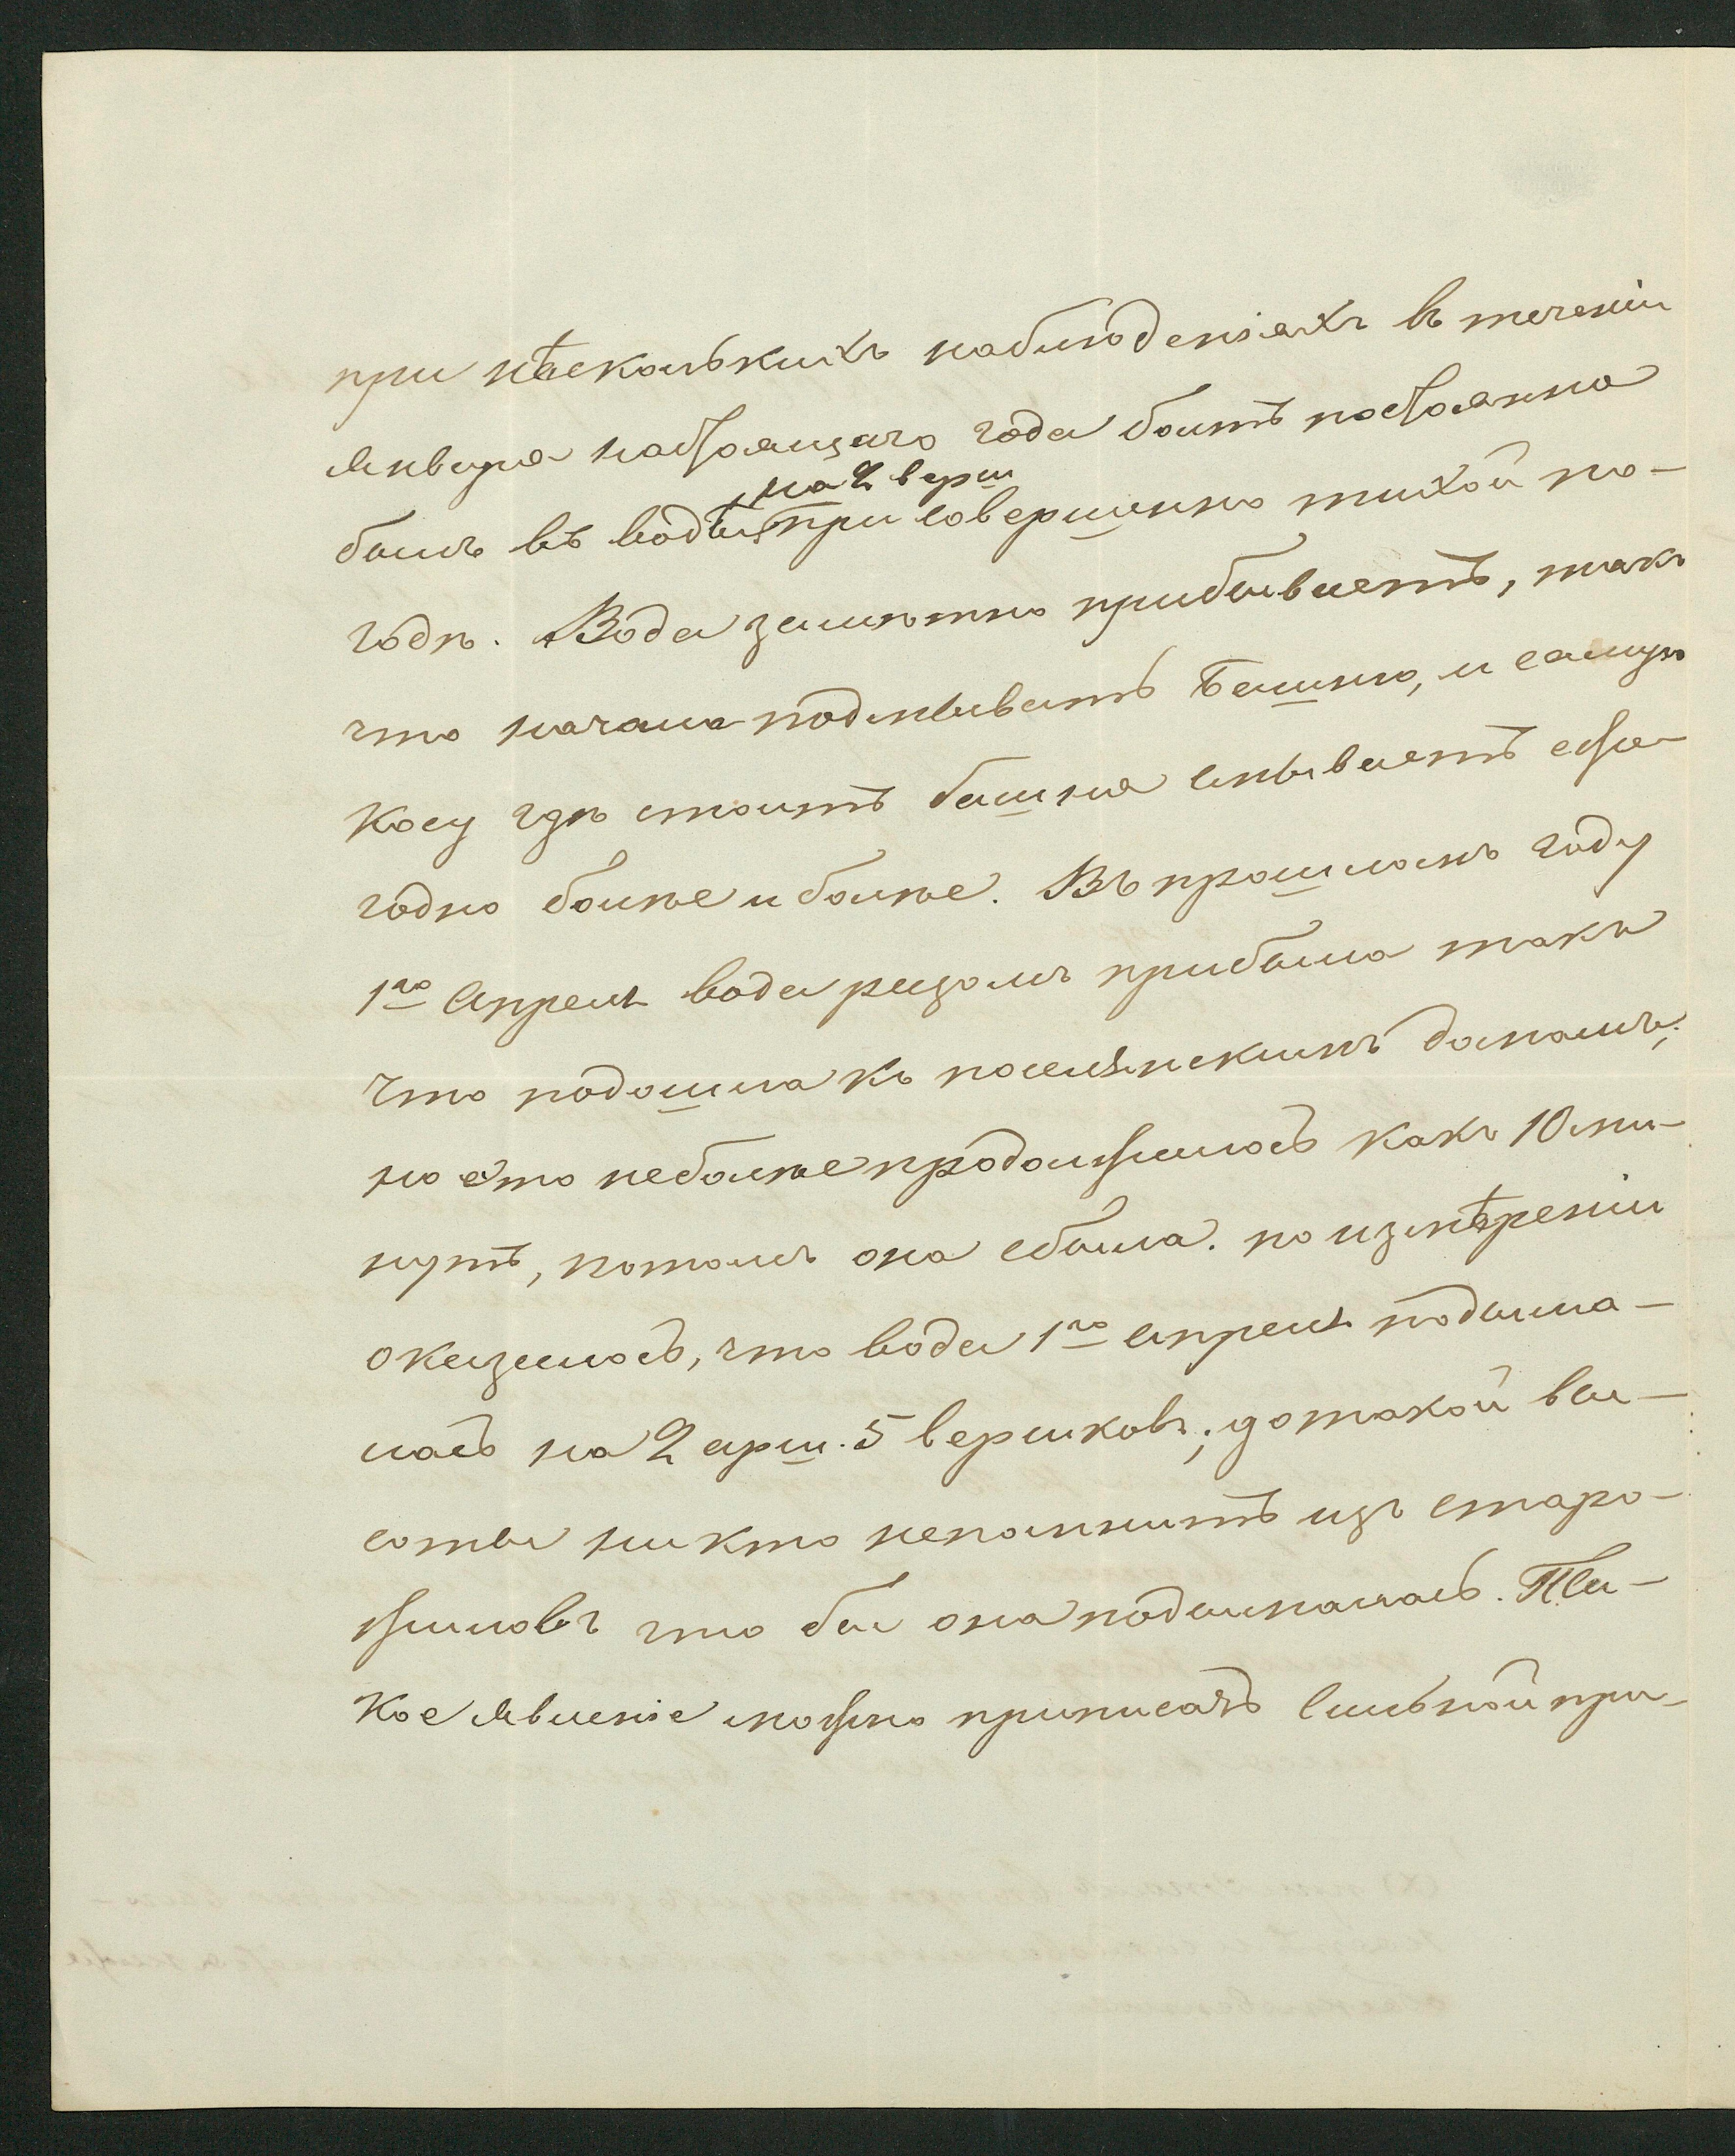 при нѣсколькихъ наблюденіяхъ въ теченіи
Января настоящаго года болтъ постоянно
на 2 верш
былъ въ водѣ при совершенно тихой по-
годѣ. Вода замѣтно прибываетъ, такъ
что начала подмывать башню, и самую
косу гдѣ стоитъ башня смываетъ еже-
годно болѣе и болѣе. Въ прошломъ году
1го Апреля вода разомъ прибыла такъ
что подошла къ поселянскимъ домамъ;
но ето неболѣе продолжилось какъ 10 ми-
нутъ, потомъ она сбыла. по измѣреніи
оказалось, что вода 1го апреля подыма-
лась на 2 арш. 5 вершковъ; до такой вы-
соты никто непомнитъ изъ старо-
жиловъ что бы она подымалась. Та-
кое явленіе можно приписать сильной при-